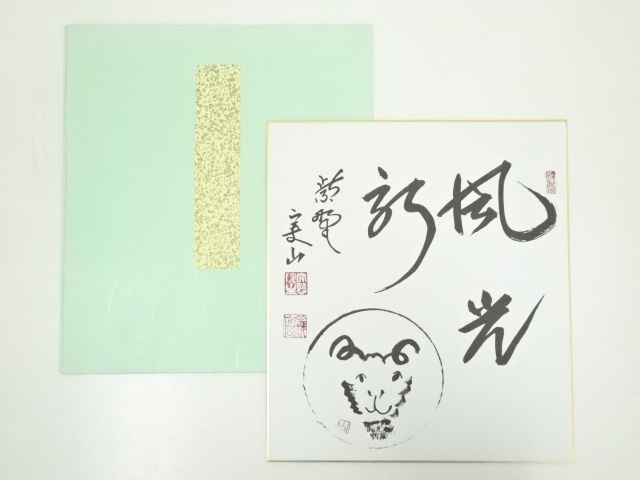 風光
新
紫野
実山